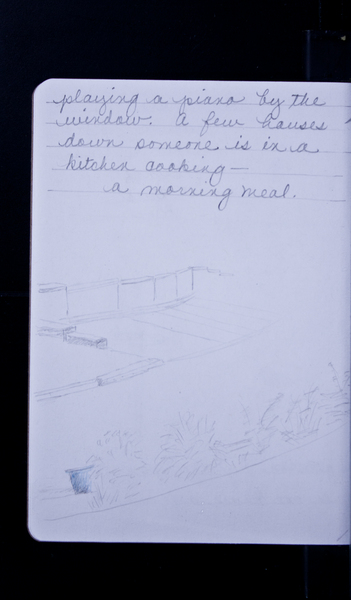 playing a piano by the
window. A few houses
down someone is in a
kitchen cooking—
a morning meal.